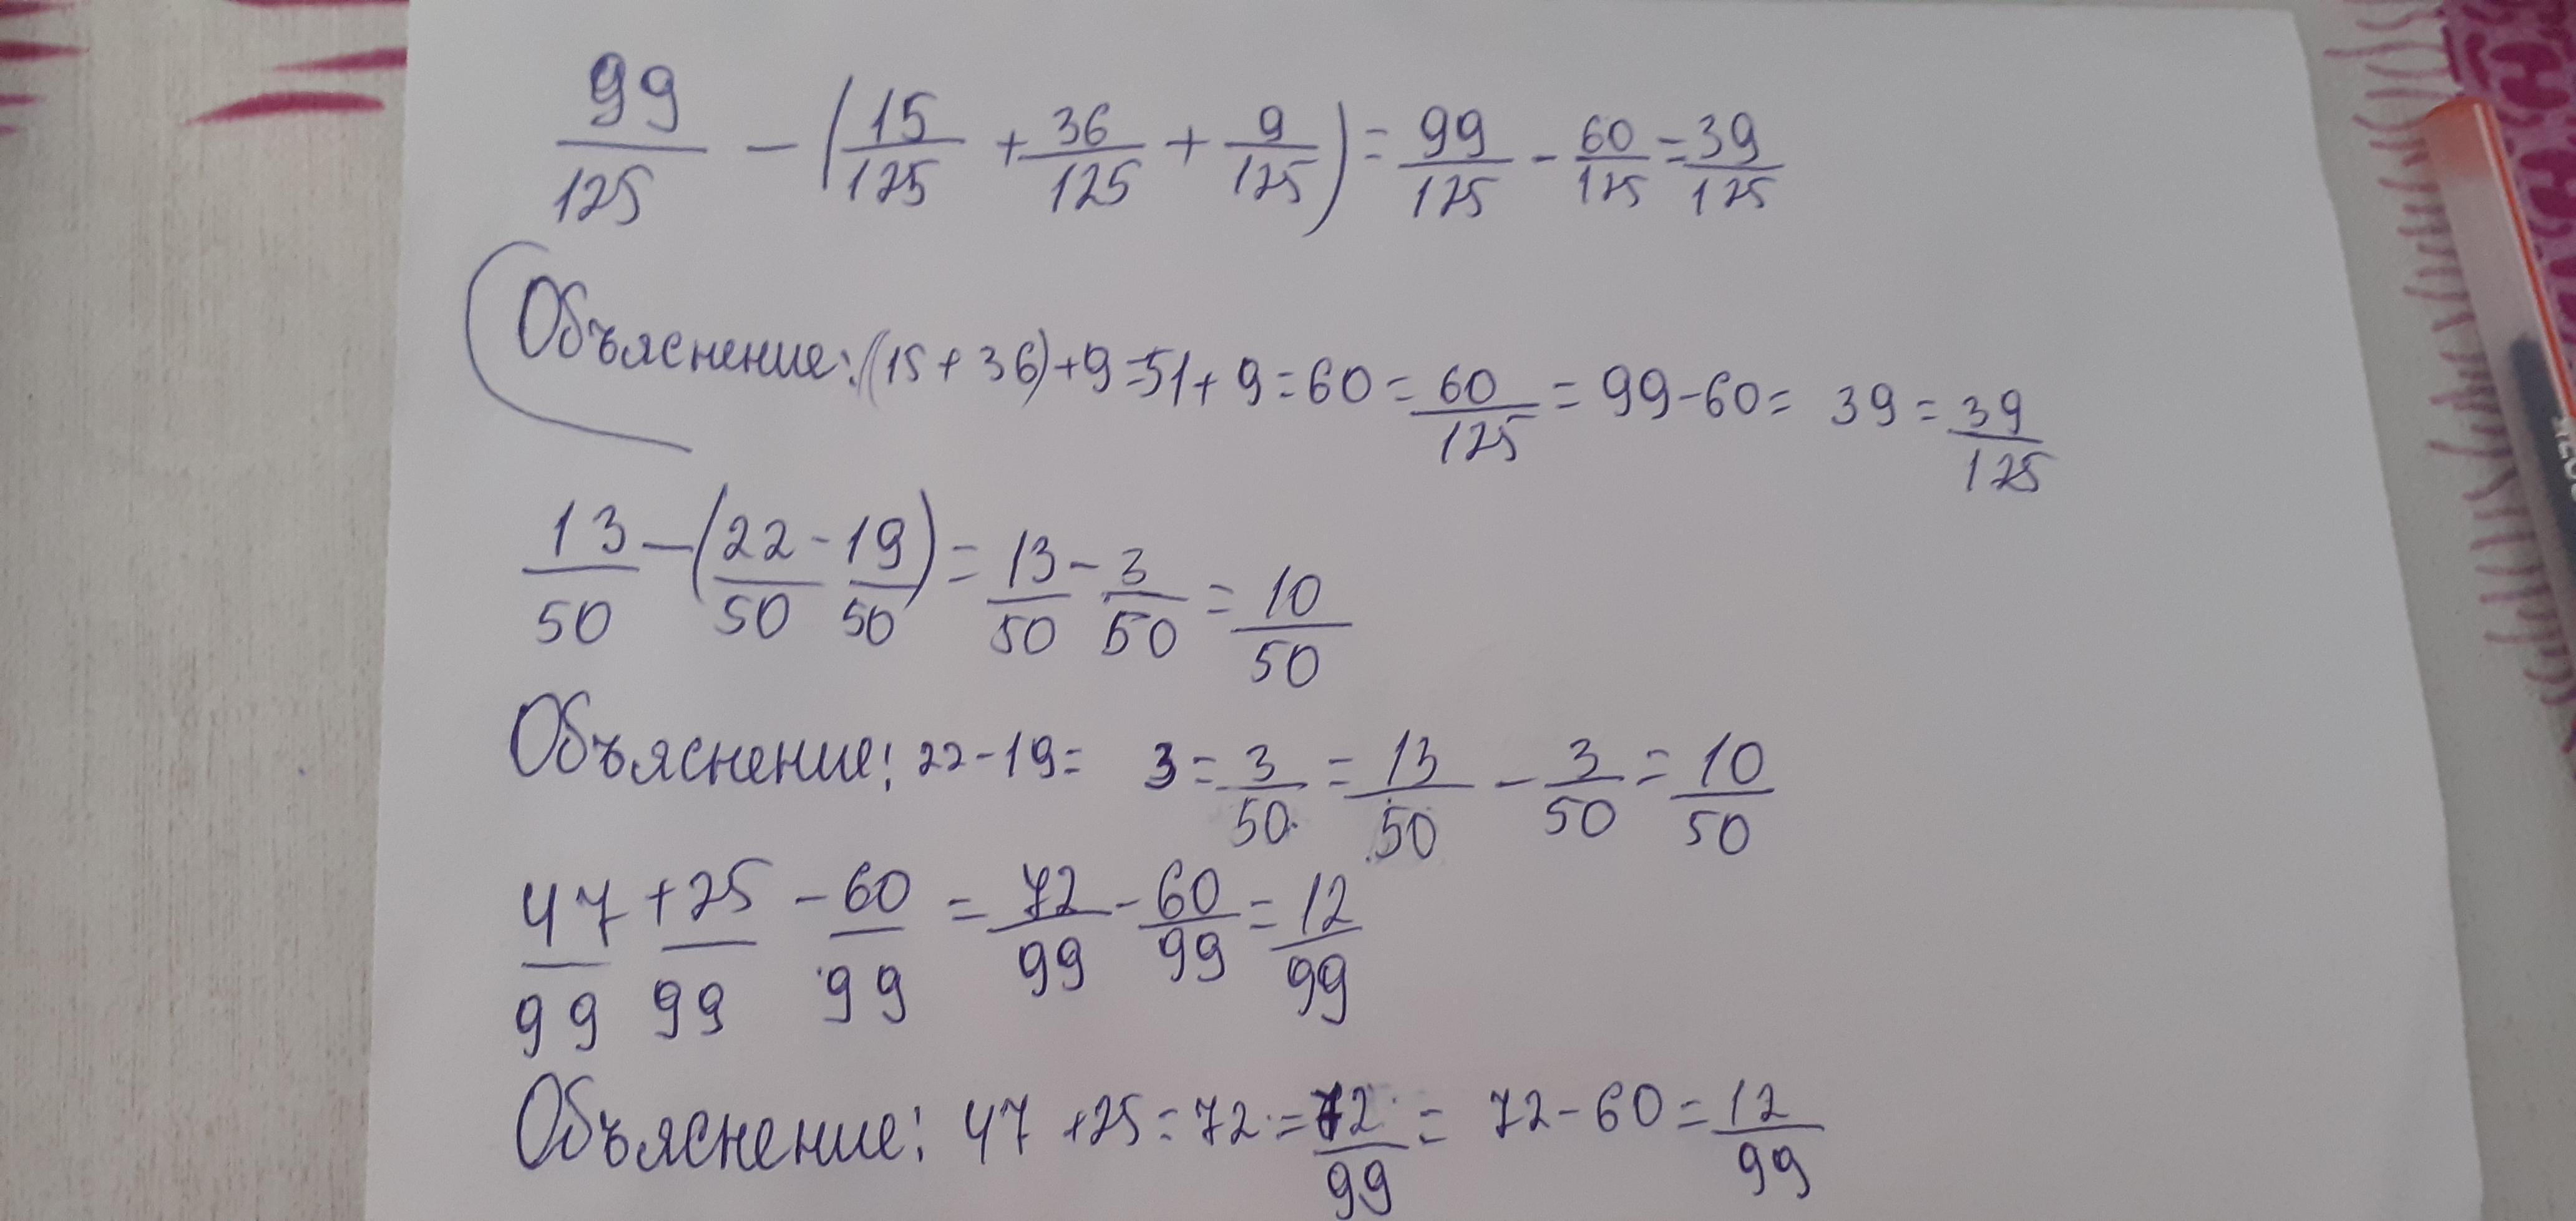 99/125 - (15/125 + 36/125 + 9/125) = 99/125 - 60/125 = 39/125
Объяснение: (15 + 36) + 9 = 51 + 9 = 60 = 60/125 = 99 - 60 = 39 = 39/125
13/50 - (22/50 - 19/50) = 13/50 - 3/50 = 10/50
Объяснение: 22 - 19 = 3 = 3/50 = 13/50 - 3/50 = 10/50
47/99 + 25/99 - 60/99 = 72/99 - 60/99 = 12/99
Объяснение: 47 + 25 = 72 = 72/99 = 72 - 60 = 12/99